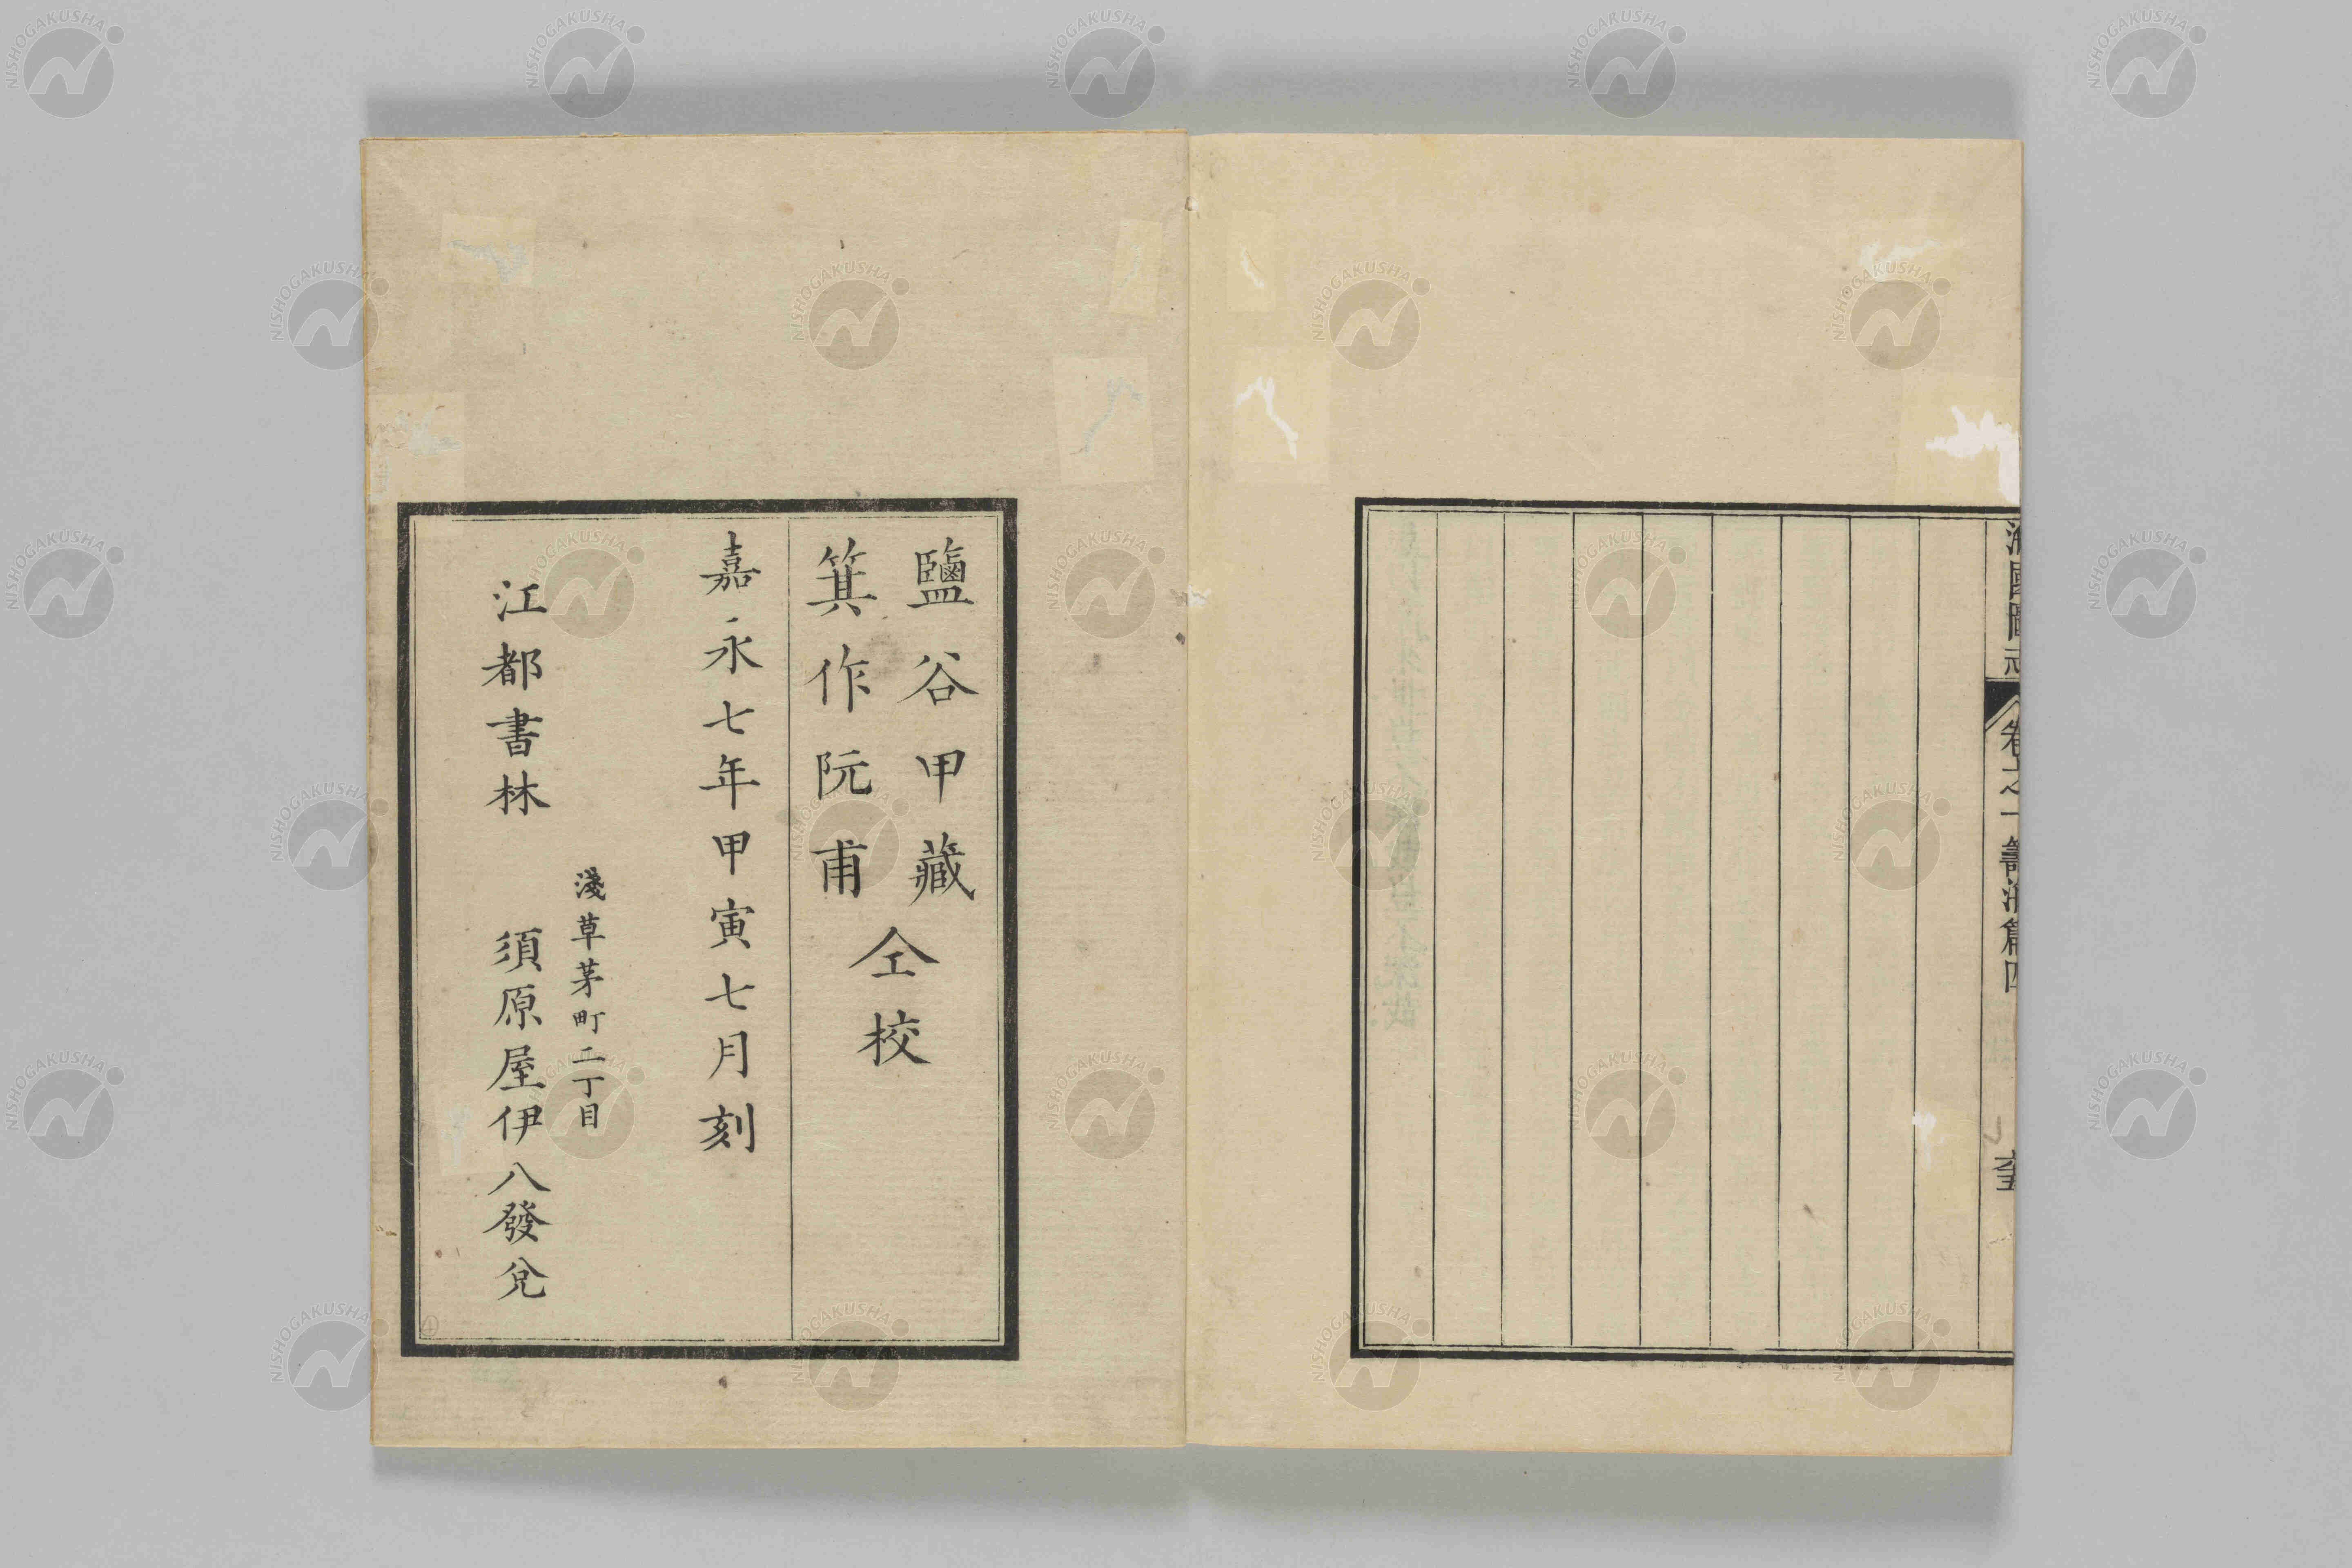 海國圖志 卷之一 籌海篇四
鹽谷甲藏
箕作阮甫
仝校
嘉永七年甲寅七月刻
淺草茅町二丁目
江都書林 須原屋伊八發兌
NISHOGAKUSHA